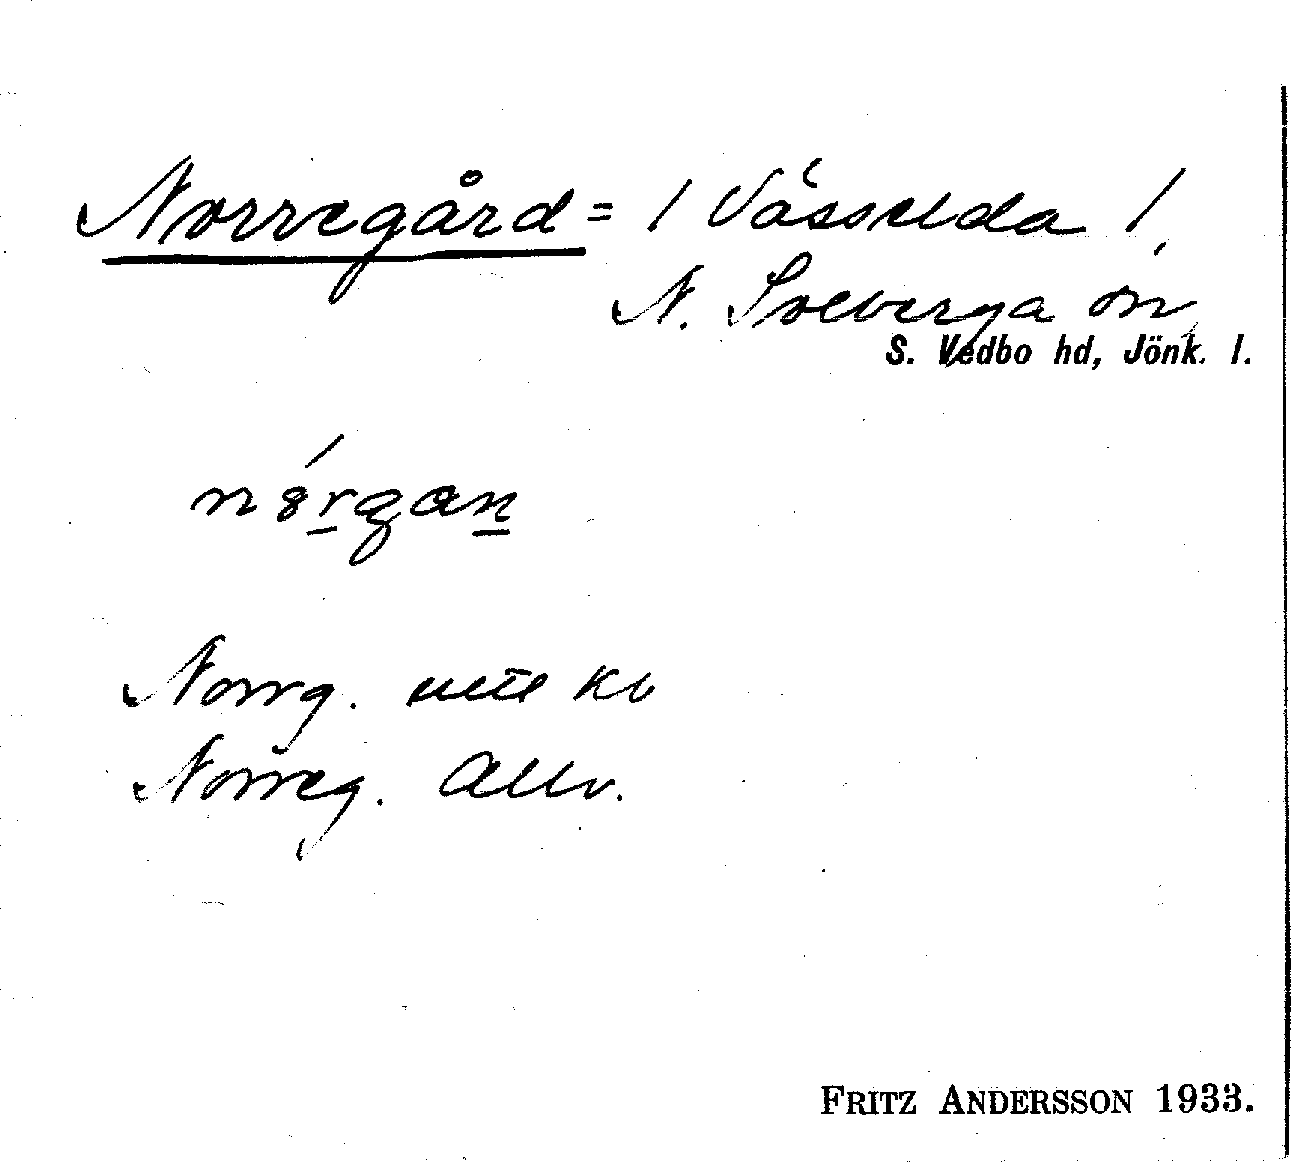 Norregård = / Vässelda /,
N. Solberga sn,
S. Vedbo hd, Jönk. l.
Norrg.
Norreg. Allv.
FRITZ ANDERSSON 1933.